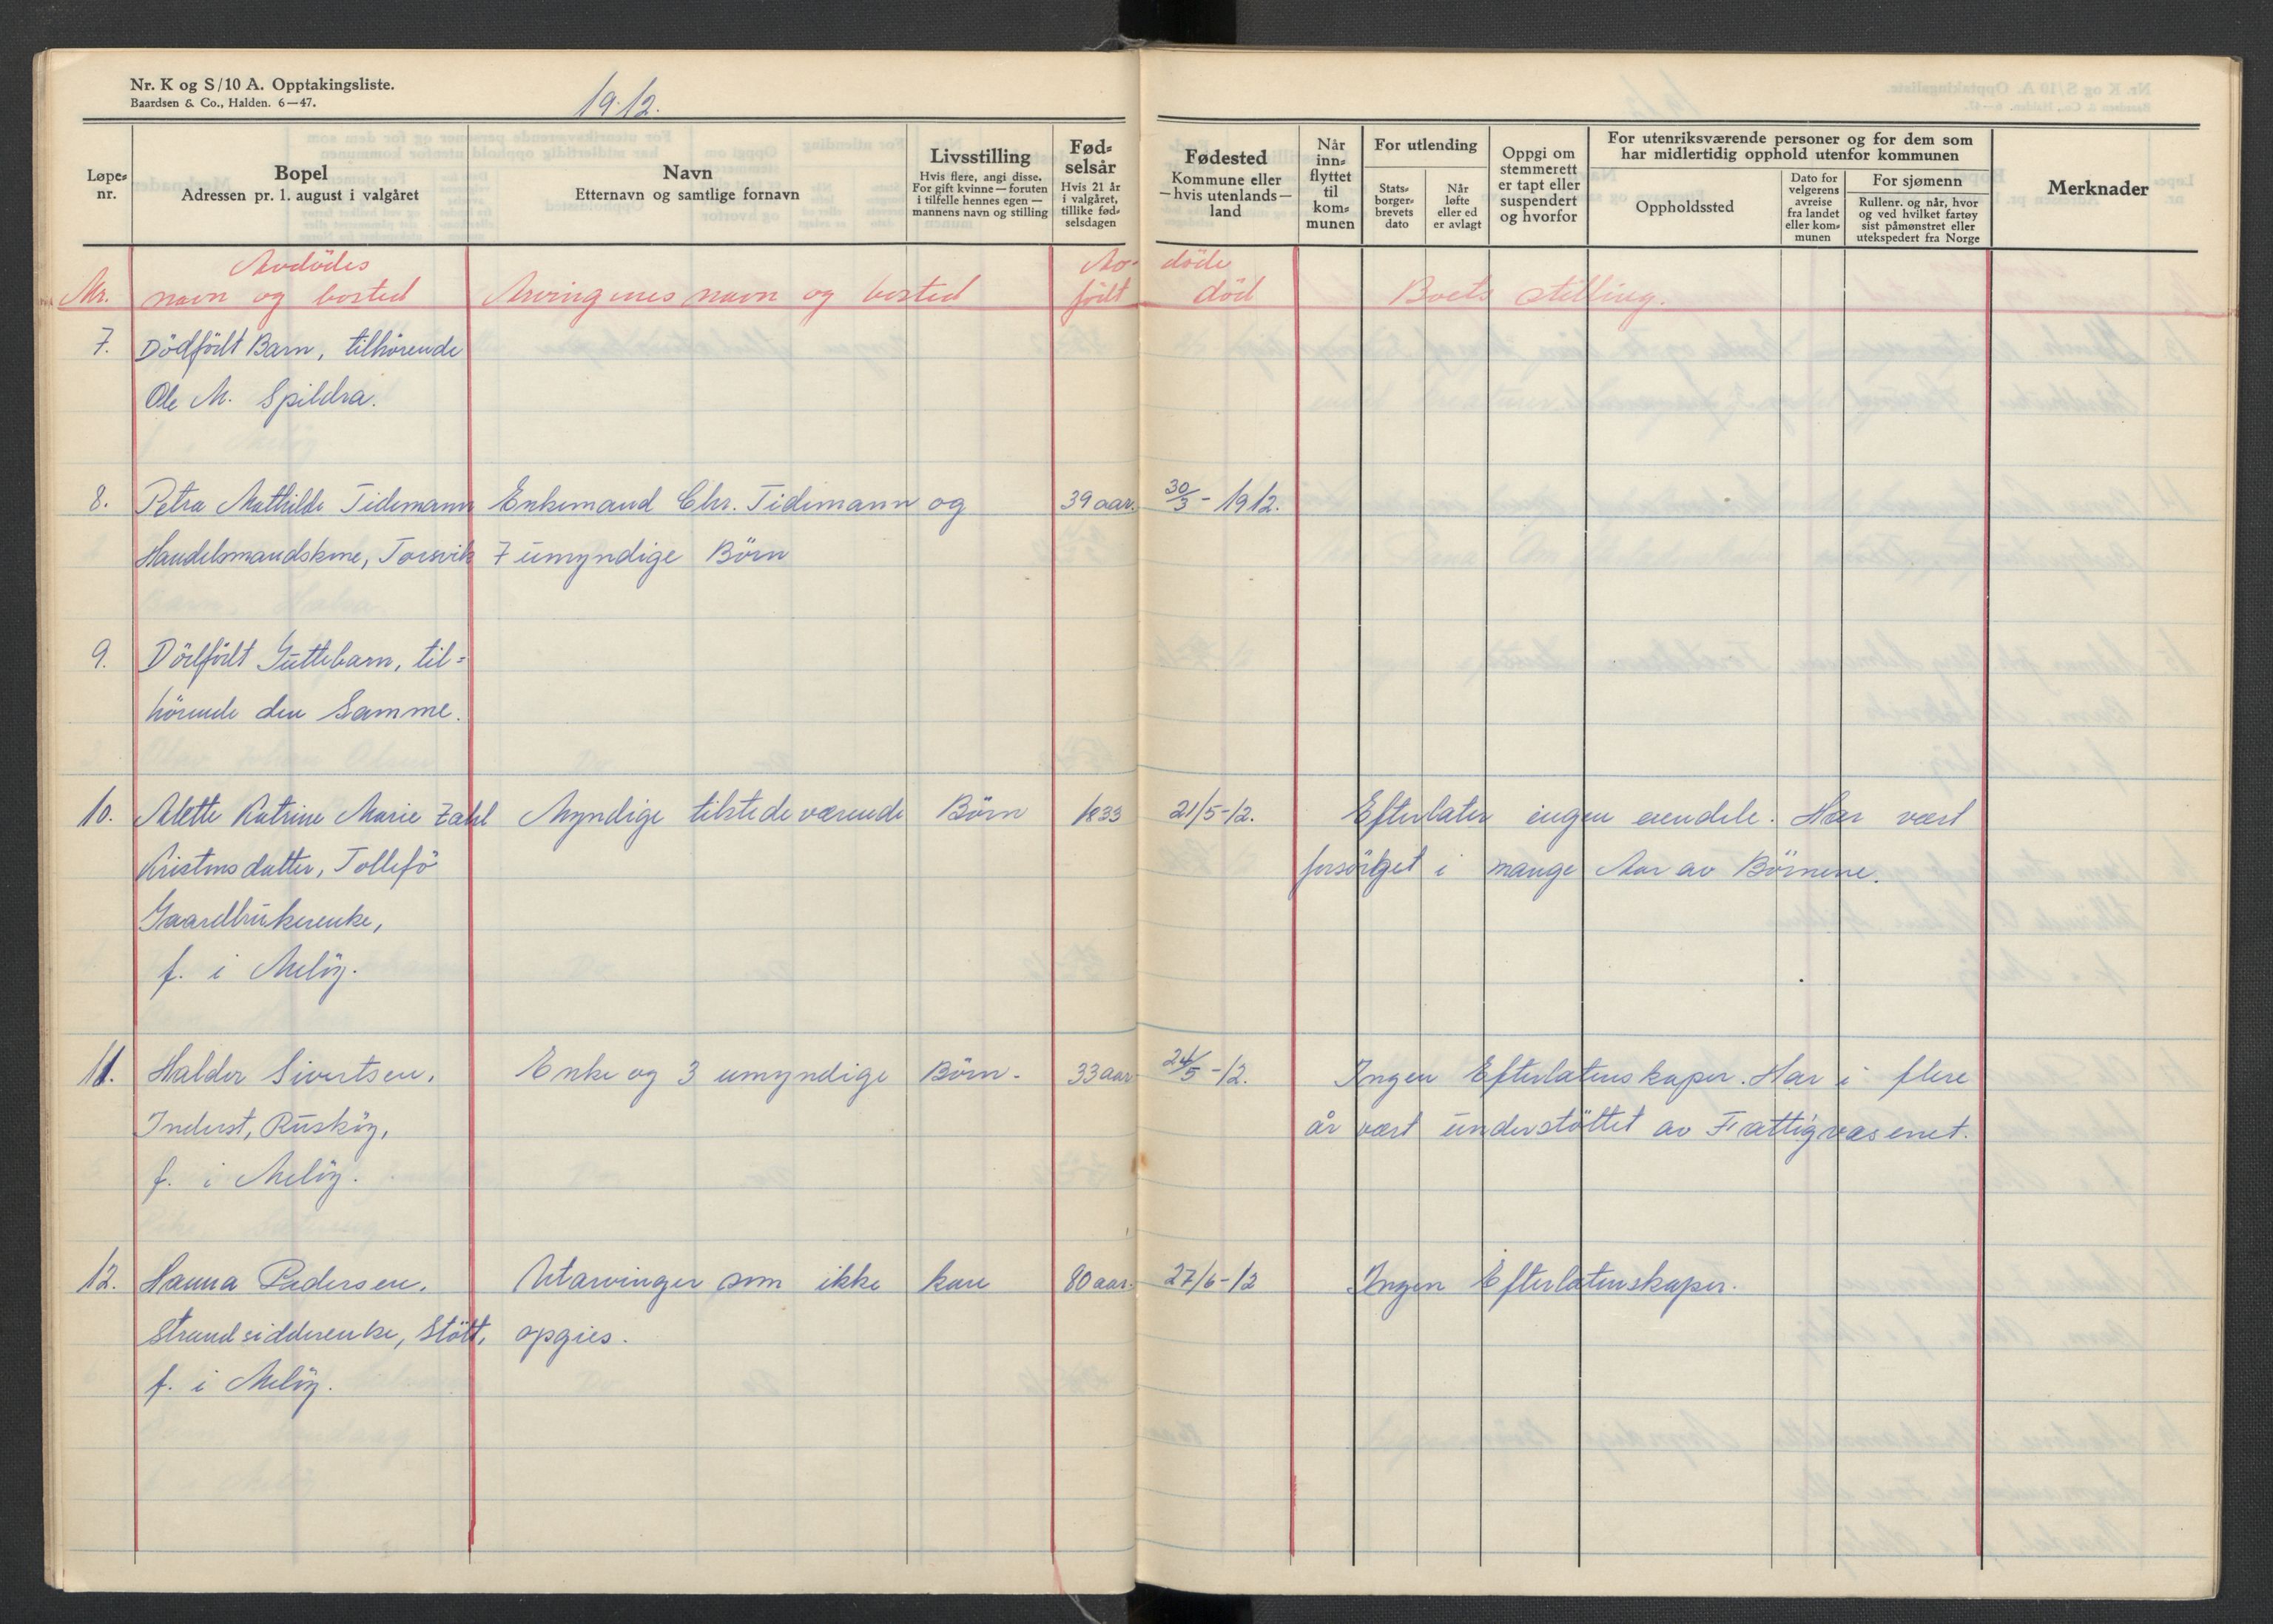 Nr. K og S/10 A. Opptakingsliste.
Baardsen & Co., Halden. 6—47.
1912.
Løpe-
nr.
Bopel
Adressen pr. 1. august i valgåret
Navn
Etternavn og samtlige fornavn
Livsstilling
Hvis flere, angi disse.
For gift kvinne — foruten
i tilfelle hennes egen —
mannens navn og stilling
Fød-
selsår
Hvis 21 år
i valgåret,
tillike fød-
selsdagen
Fødested
Kommune eller
— hvis utenlands —
land
Når
inn-
flyttet
til
kom-
munen
For utlending
Stats-
borger-
brevets
dato
Når
løfte
eller ed
er avlagt
Oppgi om
stemmerett
er tapt eller
suspendert
og hvorfor
For utenriksværende personer og for dem som
har midlertidig opphold utenfor kommunen
Oppholdssted
Dato for
velgerens
avreise
fra landet
eller kom-
munen
For sjømenn
Rullenr. og når, hvor
og ved hvilket fartøy
sist påmønstret eller
utekspedert fra Norge
Merknader
Avdödes Av- döde
Nr. navn og bosted Arvingenes navn og bosted född död Boets stelling.
7. Dödfödt Barn, tilhörende
Ole M. Spildra.
8. Petra Mathilde Tidemann Enkemand Chr. Tidemann og 39 aar. 30/3 - 1912.
Handelsmandskone, Torsvik 7 umyndige Börn
9. Dödfödt Guttebarn, til=
hörende den Samme.
10. Alette Katrine Marie Zahl Myndige tilstedeværende Börn 1833 21/5-12. Efterlater ingen eiendele. Har vært
Kristensdatter, Tollefö forsörget i mange Aar av Börnene.
Gaardbrukerenke,
f. i Melöy.
11. Halder Sivertsen. Enke og 3 umyndige Börn. 33 aar 24/5-12. Ingen Efterlatenskaper. Har i flere
Inderst, Rusköy, år vært understöttet av Fattigvæsenet.
f. i Melöy.
12. Hanna Pedersen. Utarvinger som ikke kan 80 aar. 27/6-12 Ingen Efterlatenskaper.
Strandsidderenke, Stött, opgies.
f. i Melöy.